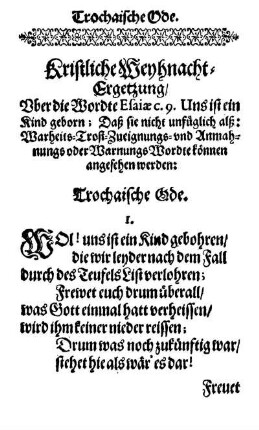 Trochaische Ode.
Kristliche Weyhnacht-
Ergetzung/
Vber die Wordte Esaiæ c. 9. Uns ist ein
Kind geborn: Daß sie nicht unfüglich alß:
Warheits-Trost-Zueignungs-vnd Anmah-
nungs oder Warnungs Wordte können
angesehen werden:
Trochaische Ode.
1.
WOl! uns ist ein Kind gebohren/
die wir leyder nach dem Fall
durch des Teufels List verlohren;
Frewet euch drum überall/
was Gott einmal hatt verheissen/
wird ihm keiner nieder reissen;
Drum was noch zukünftig war/
siehet hie als wär es dar!
Freuet